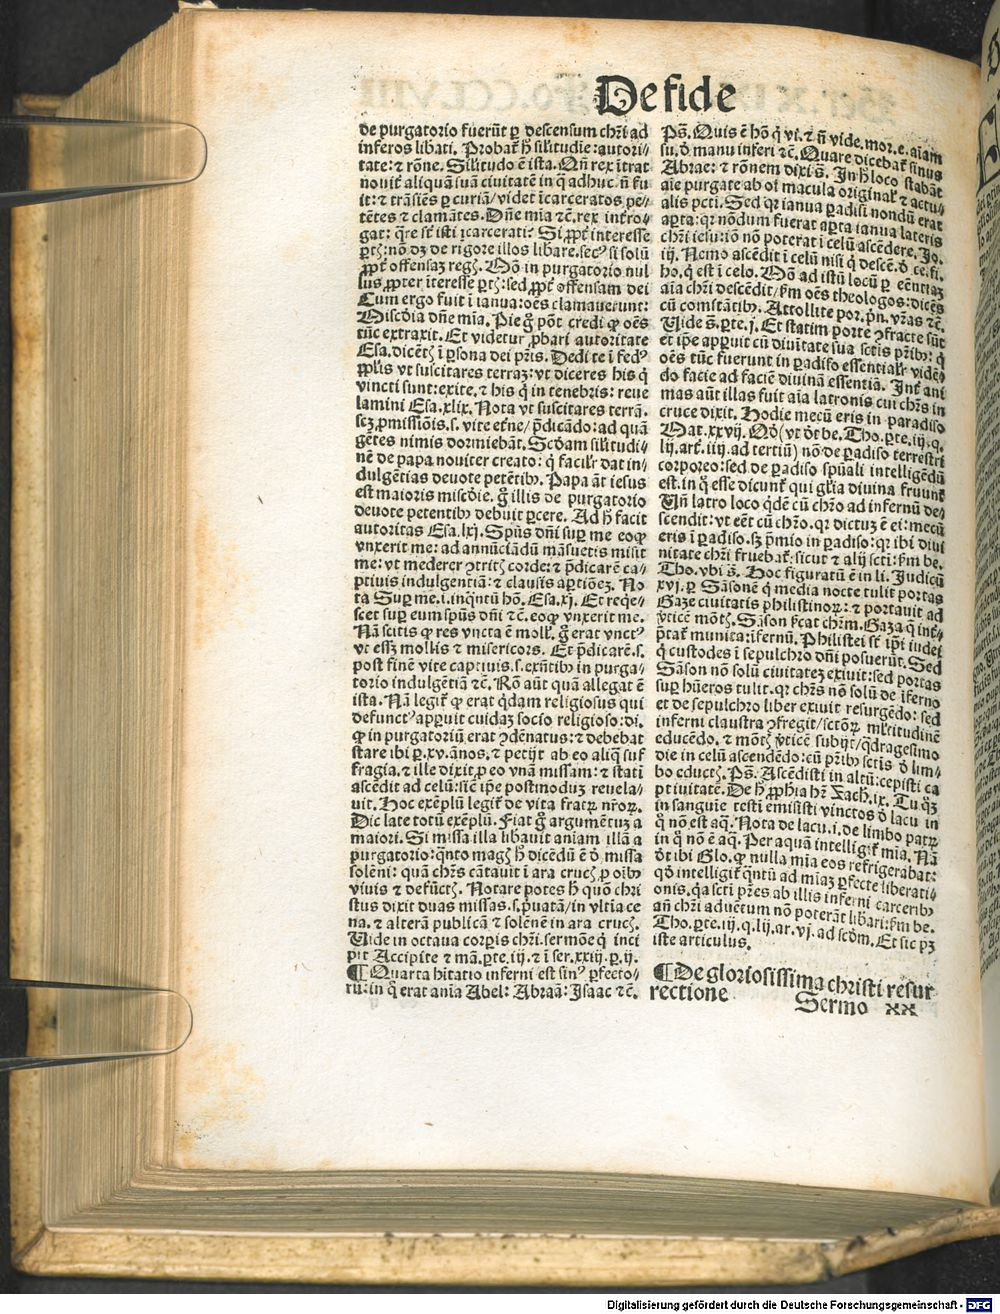 De fide
de purgatorio fuerūt ꝑ descensum chr̄i ad
inferos libati. Probat̄ h̄ sil̄itudīe: autori⸗
tate: ⁊ rōne. Sil̄itudo ē ista. Qn̄ rex ītrat
nouit̄ aliquā suā ciuitatē in q̄ adhuc n̄ fu
it: ⁊ trāsiēs ꝑ curiā/ videt īcarceratos pe⸗
tētes ⁊ clamātes. Dn̄e mīa ⁊c̄. rex int̄ro⸗
gat: q̄re st̄ isti īcarcerati? Si ꝓpt̄ interesse
ꝑtꝭ: nō dꝫ de rigore illos libare. secꝰ si solū
ꝓpt̄ offensaꝫ regꝭ. Mō in purgatorio nul
lus ꝓpter īteresse ꝑtꝭ: sed ꝓpt̄ offensam dei
Cum ergo fuit ī ianua: oēs clamauerunt:
Miscōia dn̄e mīa. Pie ḡ pōt credi ꝙ oēs
tūc extraxit. Et videtur ꝓbari autoritate
Esa. dicētꝭ ī ꝑsona dei pr̄is. Dedi te ī fedꝰ
ppl̄is vt suscitares terraꝫ: vt diceres his q̄
vincti sunt: exite. ⁊ his q̄ in tenebris: reue
lamini Esa. xlix. Nota vt suscitares terrā.
scꝫ ꝓmissiōis. s. vite etn̄e/ p̄dicādo: ad quā
gētes nimis dormiebāt. Scd̄am sil̄itudi⸗
nē de papa nouiter creato: q̄ facil̄r dat in⸗
dulgētias deuote petētibꝰ. Papa āt iesus
est maioris miscd̄ie. q̄ illis de purgatorio
deuote petentibꝰ debuit ꝑcere. Ad h̄ facit
autoritas Esa. lxj. Spūs dn̄i suꝑ me eoꝙ
vnxerit me: ad annūciādū māsuetis misit
me: vt mederer ꝯtritꝭ corde: ⁊ p̄dicarē ca⸗
ptiuis indulgentiā: ⁊ clausis aꝑtiōeꝫ. No
ta Suꝑ me. i. inq̄ntū hō. Esa. xj. Et reqe⸗
scet suꝑ eum spūs dn̄i ⁊c̄. eoꝙ vnxerit me.
Nā scitis ꝙ res vncta ē moll̄. ḡ erat vnctꝰ
vt essꝫ mollis ⁊ misericors. Et p̄dicarē. s.
post finē vite captiuis. s. exn̄tibꝰ in purga⸗
torio indulgētiā ⁊c̄. Rō aūt quā allegat ē
ista. Nā legit̄ ꝙ erat q̄dam religiosus qui
defunctꝰ apꝑuit cuidaꝫ socio religioso: di.
ꝙ in purgatoriū erat ꝯdēnatus: ⁊ debebat
stare ibi ꝑ. xv. ānos. ⁊ petijt ab eo aliq̄ suf
fragia. ⁊ ille dixit ꝓ eo vnā missam: ⁊ stati
ascēdit ad celū: sīc īpe postmoduꝫ reuela⸗
uit. Hoc exēplū legit̄ de vita fratꝝ nr̄oꝝ.
Dic late totū exēplū. Fiat ḡ argumētuꝫ a
maiori. Si missa illa libauit aniam illā a
purgatorio: q̄nto magꝭ h̄ dicēdū ē ō missa
solēni: quā chr̄s cātauit ī ara crucꝭ ꝓ oībꝰ
viuis ⁊ defūctꝭ. Notare potes h̄ quō chri
stus dixit duas missas. s. p̄uatā/ in vltīa ce
na. ⁊ alterā publicā ⁊ solēnē in ara crucꝭ.
Uide in octaua corꝑis chr̄i. sermōe q̄ inci
pit Accipite ⁊ mā. ꝑte. iij. ⁊ ī ser. xxiij. ꝑ. ij.
¶ Quarta hitatio inferni est sinꝰ ꝑfecto⸗
rū: in q̄ erat anīa Abel: Abraā: Isaac ⁊c̄.
Ps̄. Quis ē hō q̄ vi. ⁊ n̄ vide. mor. e. aīam
su. ō manu inferi ⁊c̄. Quare dicebat̄ sinus
Abrae: ⁊ rōnem dixi s̄. In h̄ loco stabāt
aīe purgate ab oī macula original̄ ⁊ actu⸗
alis pcti. Sed qr ianua ꝑadisi nondū erat
aꝑta: qr nōdum fuerat aꝑta ianua lateris
chr̄i iesu: iō nō poterat ī celū ascēdere. Jo.
iij. Nemo ascēdit ī celū nisi q̄ descē. ō ce. fi.
ho. q̄ est ī celo. Mō ad istū locū ꝑ eēntiaꝫ
aīa chr̄i descēdit/ ẜm oēs theologos: dicēs
cū comitātibꝰ. Attollite por. pn̄. vr̄as ⁊c̄.
Uide s̄. ꝑte. j. Et statim porte ꝯfracte sūt
et īpe apꝑuit cū diuitate sua sctis pr̄ibꝰ: q̄
oēs tūc fuerunt in ꝑadiso essential̄r vidē⸗
do facie ad faciē diuinā essentiā. Int̄ ani
mas aūt illas fuit aīa latronis cui chr̄s in
cruce dixit. Hodie mecū eris in paradiso
Mat. xxvij. Mō (vt ōt be. Tho. ꝑte. iij. q.
lij. art̄. iiij. ad tertiū) nō de ꝑadiso terrestri
corporeo: sed de ꝑadiso spūali intelligēdū
est. in q̄ esse dicunt̄ qui gl̄ria diuina fruunt̄
Un̄ latro loco q̄dē cū chr̄o ad infernū de⸗
scendit: vt eēt cū chr̄o. qr dictuꝫ ē ei: mecū
eris ī ꝑadiso. sꝫ p̄mio in ꝑadiso: qr ibi diui
nitate chr̄i fruebat̄: sicut ⁊ alij scti: ẜm be.
Tho. vbi s̄. Hoc figuratū ē in li. Judicū
xvj. ꝑ Sāsonē q̄ media nocte tulit portas
Gaze ciuitatis philistinoꝝ: ⁊ portauit ad
ꝟticē mōtꝭ. Sāson ẜcat chr̄m. Gaza q̄ int̄⸗
p̄tat̄ munita: īfernū. Philistei st̄ īpi iudei
q̄ custodes ī sepulchro dn̄i posuerūt. Sed
Sāson nō solū ciuitateꝫ exiuit: sed portas
suꝑ hūeros tulit. qr chr̄s nō solū de īferno
et de sepulchro liber exiuit resurgēdo: sed
inferni claustra ꝯfregit/ sctōꝝ ml̄titudinē
educēdo. ⁊ mōtꝭ ꝟticē subijt/ q̄dragesimo
die in celū ascendēdo: cū pr̄ibꝰ sctis ō lim⸗
bo eductꝭ. Ps̄. Ascēdisti in altū: cepisti ca
ptiuitatē. De h̄ ꝓphīa hr̄ Zach. ix. Tu qꝫ
in sanguīe testi emisisti vinctos ō lacu in
q̄ nō est aq̄. Nota de lacu. i. de limbo patꝝ
in q̄ nō ē aq̄. Per aquā intelligit̄ mīa. Nā
ōt ibi Glo. ꝙ nulla mīa eos refrigerabat:
qō intelligit̄ q̄ntū ad mīaꝫ ꝑfecte liberati⸗
onis. qa scti pr̄es ab illis inferni carceribꝰ
an̄ chr̄i aduētum nō poterāt libari: ẜm be.
Tho. ꝑte. iij. q. lij. ar. vj. ad scd̄m. Et sic pꝫ
iste articulus.
¶ De gloriosissima christi resur
rectione Sermo xx
Digitalisierung gefördert durch die Deutsche Forschungsgemeinschaft - DFG